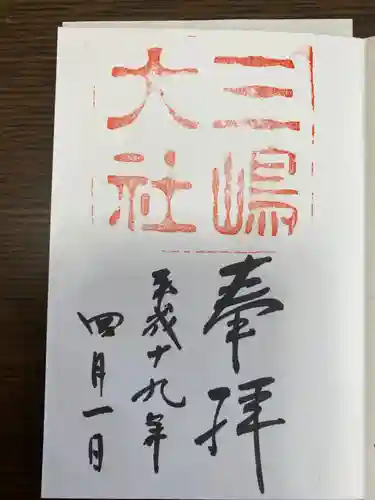 三嶋
大社
奉拝
平成十九年
四月一日